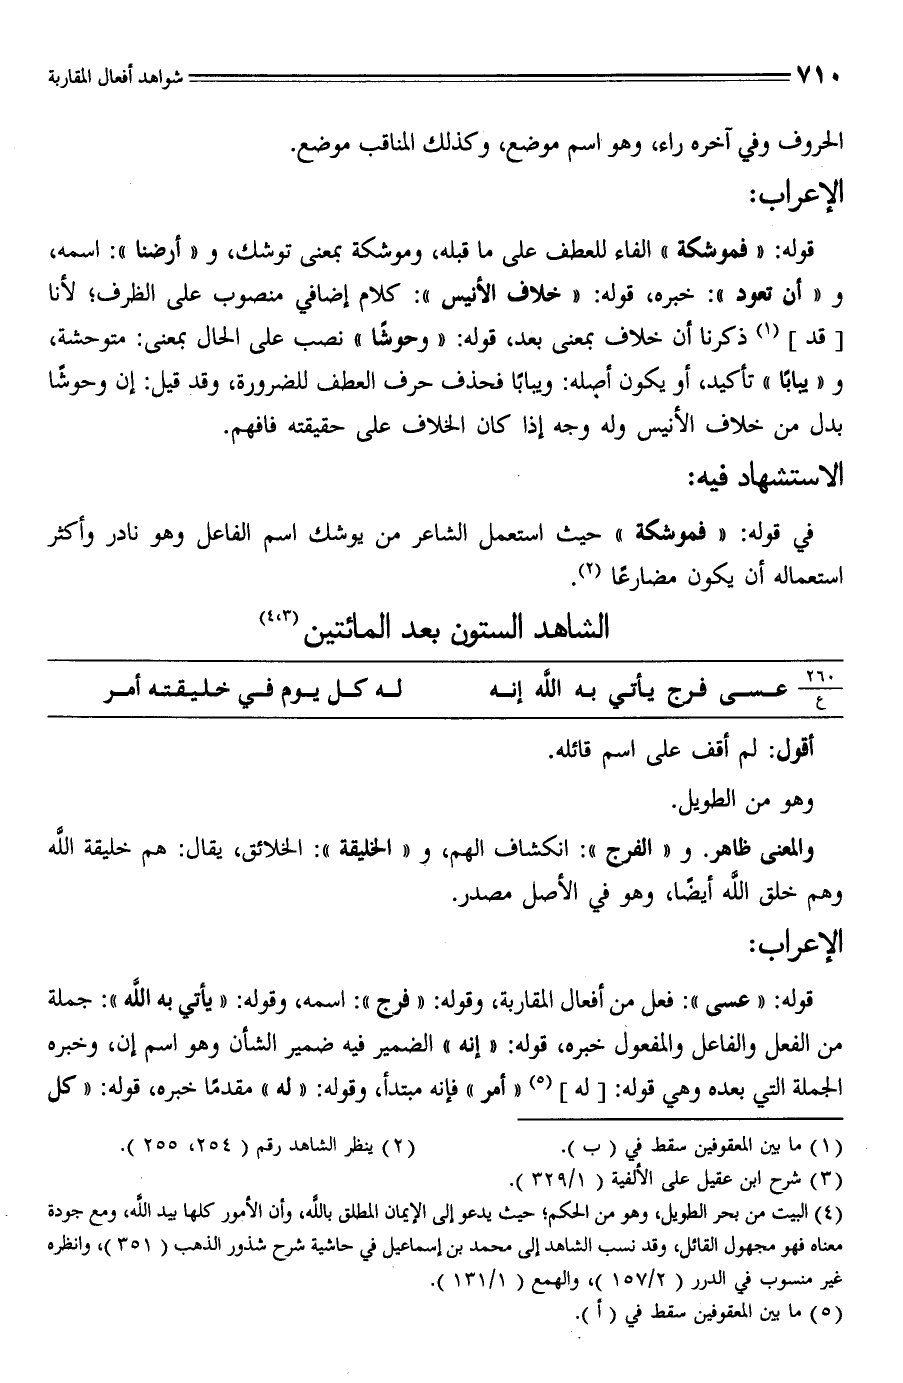 ٧١٠ شواهد أفعال المقاربة
الحروف وفي آخره راء، وهو اسم موضع، وكذلك المناقب موضع.
الإعراب:
قوله: « فموشكة » الفاء للعطف على ما قبله، وموشكة بمعنى توشك، و « أرضنا »: اسمه،
و « أن تعود »: خبره، قوله: « خلاف الأنيس »: كلام إضافي منصوب على الظرف؛ لأنا
[ قد ] (١) ذكرنا أن خلاف بمعنى بعد، قوله: « وحوشًا » نصب على الحال بمعنى: متوحشة،
و « يبابًا » تأكيد، أو يكون أصله: ويبابًا فحذف حرف العطف للضرورة، وقد قيل: إن وحوشًا
بدل من خلاف الأنيس وله وجه إذا كان الخلاف على حقيقته فافهم.
الاستشهاد فيه:
في قوله: « فموشكة » حيث استعمل الشاعر من يوشك اسم الفاعل وهو نادر وأكثر
استعماله أن يكون مضارعًا (٢).
الشاهد الستون بعد المائتين (٣،٤)
٢٦٠/ع عسى فرج يأتي به اللَّه إنه له كل يوم في خليقته أمر
أقول: لم أقف على اسم قائله.
وهو من الطويل.
والمعنى ظاهر. و « الفرج »: انكشاف الهم، و « الخليقة »: الخلائق، يقال: هم خليقة اللَّه
وهم خلق اللَّه أيضًا، وهو في الأصل مصدر.
الإعراب:
قوله: « عسى »: فعل من أفعال المقاربة، وقوله: « فرج »: اسمه، وقوله: « يأتي به اللَّه »: جملة
من الفعل والفاعل والمفعول خبره، قوله: « إنه » الضمير فيه ضمير الشأن وهو اسم إن، وخبره
الجملة التي بعده وهي قوله: [ له ] (٥) « أمر » فإنه مبتدأ، وقوله: « له » مقدمًا خبره، قوله: « كل
(١) ما بين المعقوفين سقط في ( ب ). (٢) ينظر الشاهد رقم ( ٢٥٤، ٢٥٥ ).
(٣) شرح ابن عقيل على الألفية ( ٣٢٩/١ ).
(٤) البيت من بحر الطويل، وهو من الحكم؛ حيث يدعو إلى الإيمان المطلق باللَّه، وأن الأمور كلها بيد اللَّه، ومع جودة
معناه فهو مجهول القائل، وقد نسب الشاهد إلى محمد بن إسماعيل في حاشية شرح شذور الذهب ( ٣٥١ )، وانظره
غير منسوب في الدرر ( ١٥٧/٢ )، والهمع ( ١٣١/١ ).
(٥) ما بين المعقوفين سقط في ( أ ).